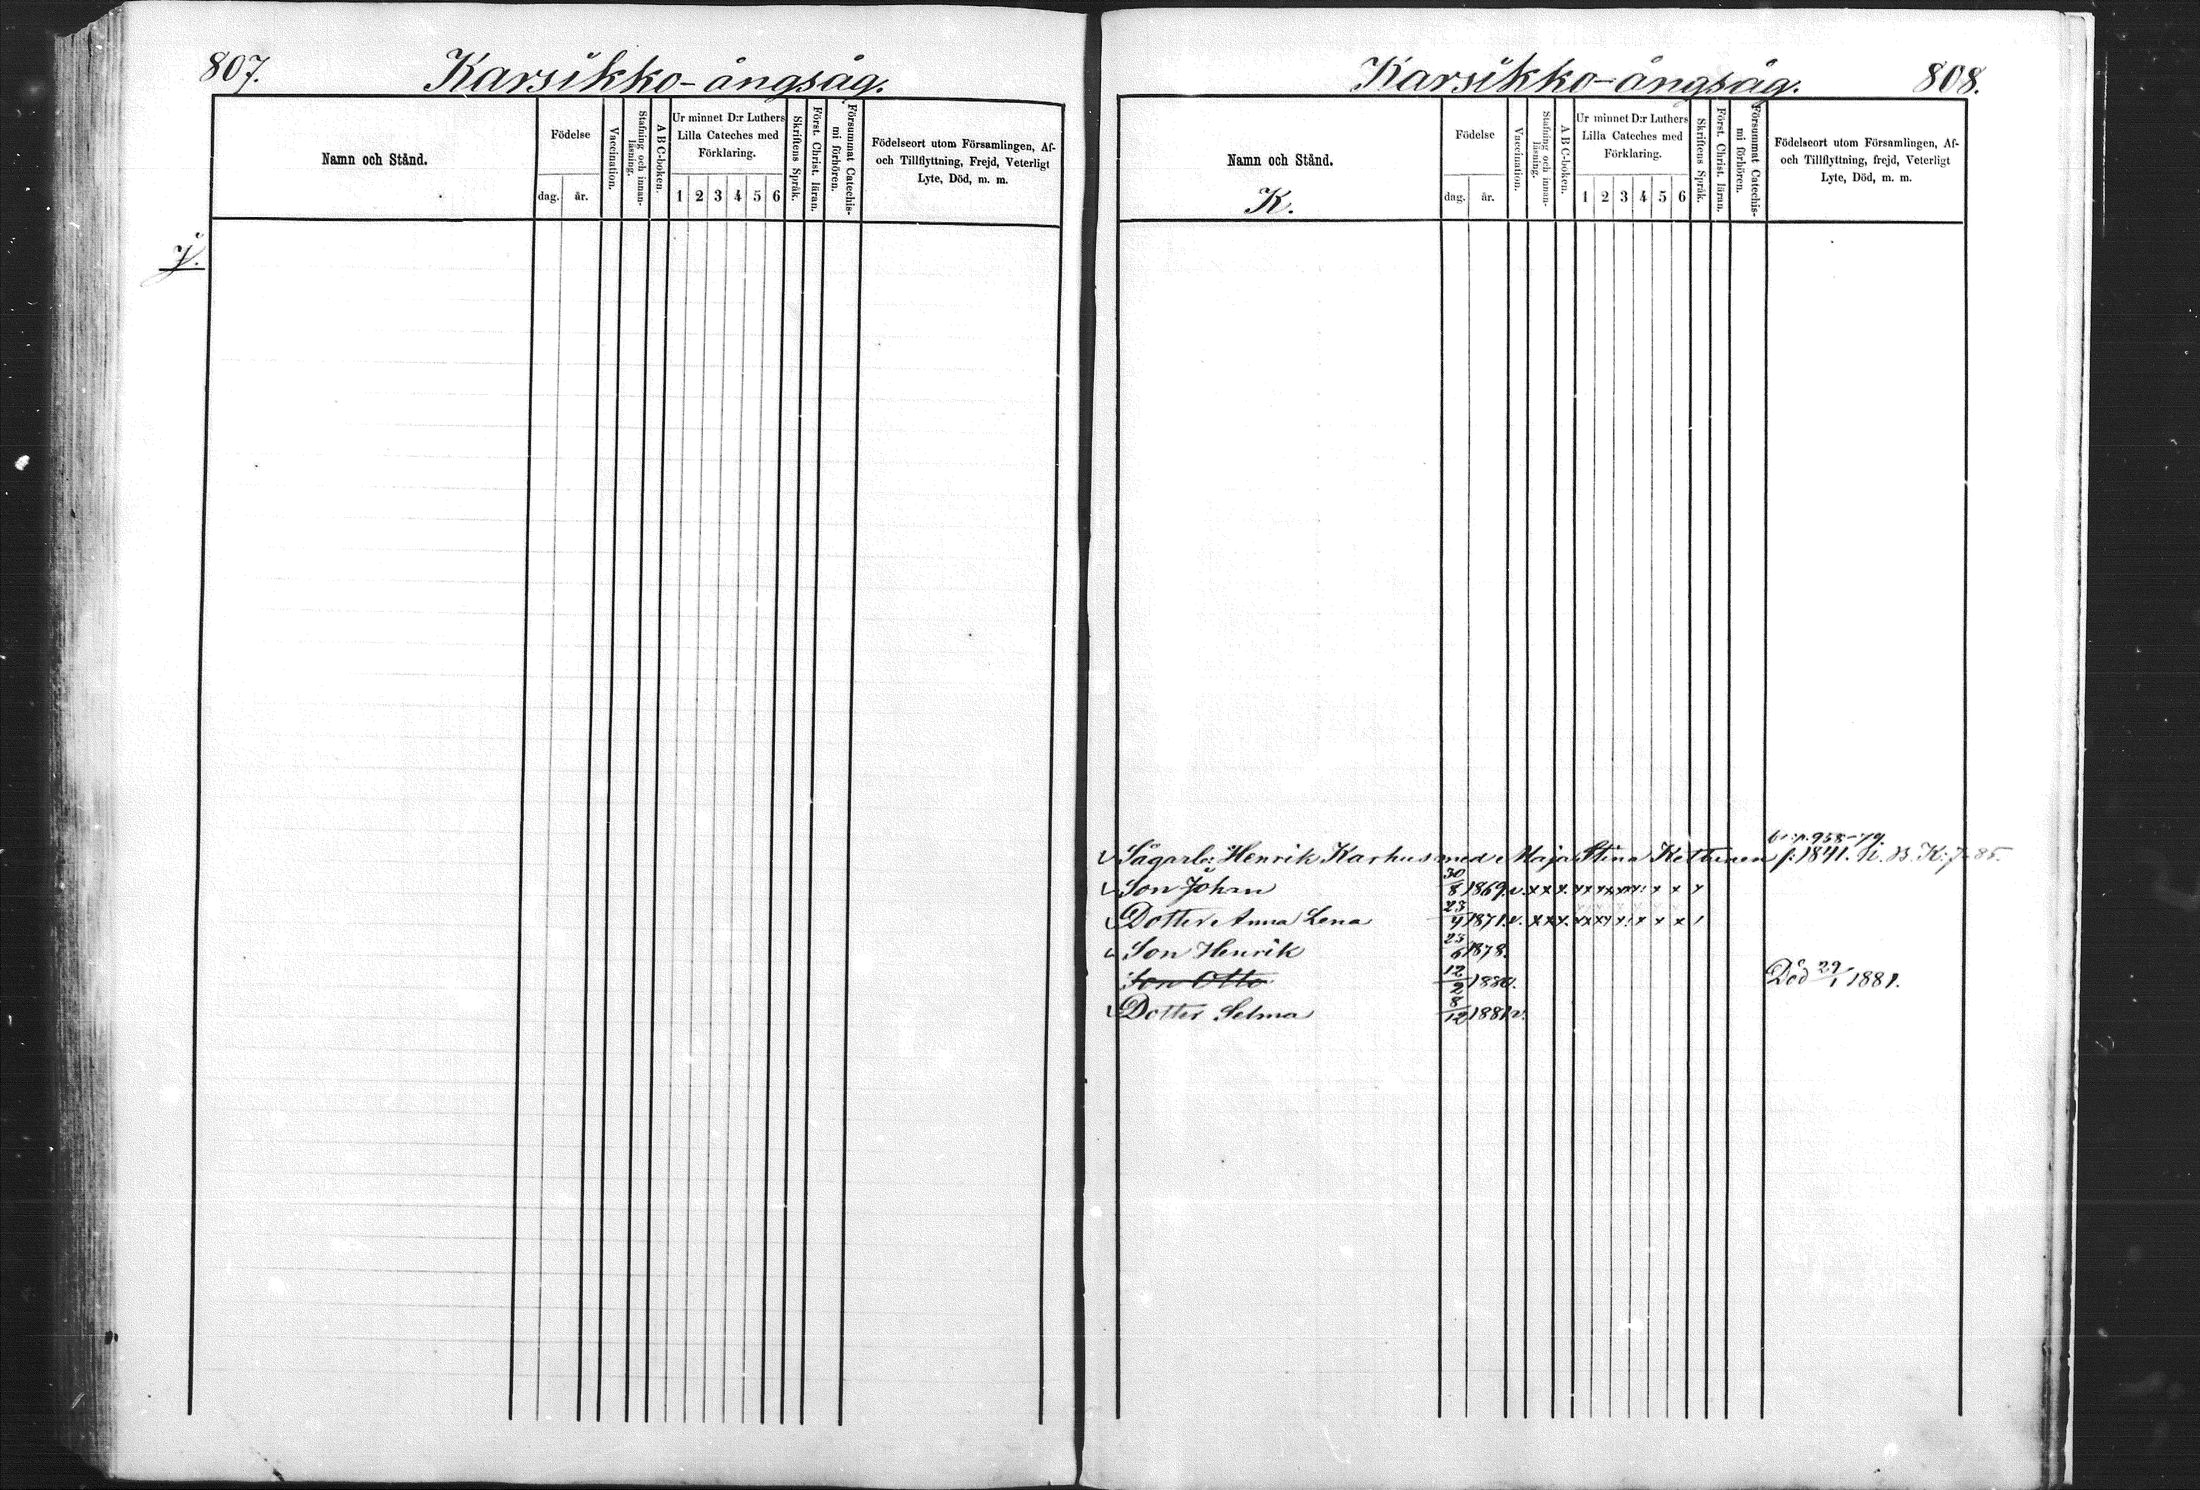 807.
Karsikko-ångsåg.
Namn och Stånd.
Födelse
dag.
år.
Vaccination.
Stafning och innan-
läsning.
A B C-boken.
Ur minnet D:r Luthers
Lilla Cateches med
Förklaring.
1 2 3 4 5 6
Skriftens Språk.
Först. Christ. läran.
Försummat Catechis-
mi förhören.
Födelseort utom Församlingen, Af-
och Tillflyttning, Frejd, Veterligt
Lyte, Död, m. m.
J.
Karsikko-ångsåg.
808.
Namn och Stånd.
K.
Födelse
dag.
år.
Vaccination.
Stafning och innan-
läsning.
A B C-boken.
Ur minnet D:r Luthers
Lilla Cateches med
Förklaring.
1 2 3 4 5 6
Skriftens Språk.
Först. Christ. läran.
Försummat Catechis-
mi förhören.
Födelseort utom Församlingen, Af-
och Tillflyttning, frejd, Veterligt
Lyte, Död, m. m.
p. 938-79
Sågarb: Henrik Karhus med Maja Stina Kettunen f: 1841. K: 7-85.
Son Johan 30/8 1869. v. x x x x x x x x x x
Dotter Anna Lena 23/4 1871. v. x x x x x x x x x x
Son Henrik 23/6 1878.
Son Otto 12/2 1880. Död 29/1 1881.
Dotter Selma 8/12 1881 v.